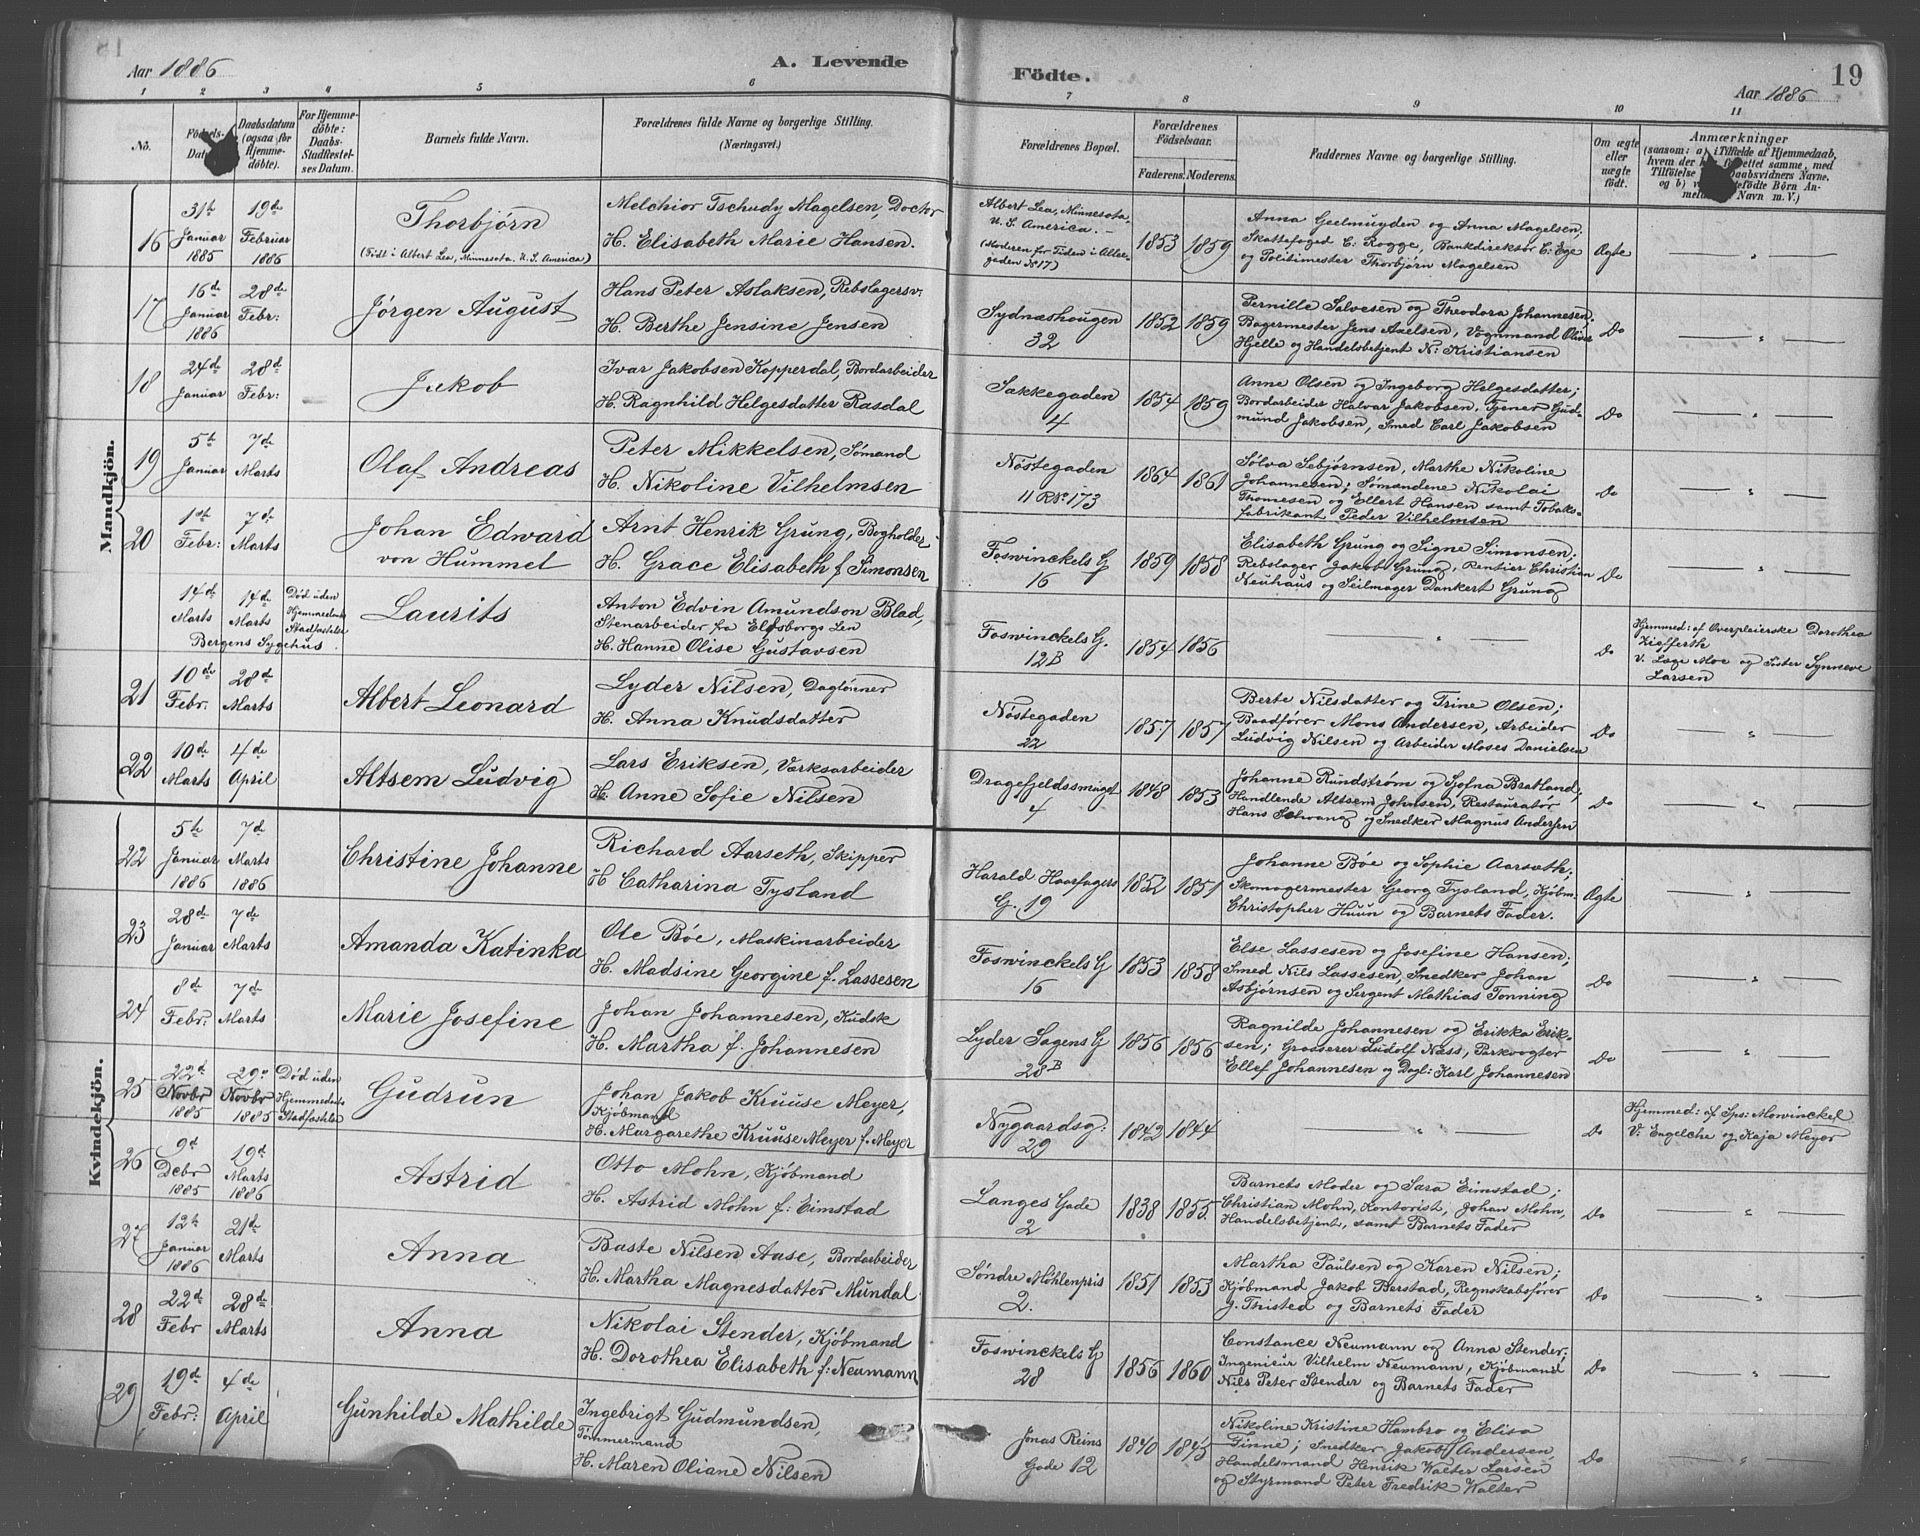 Aar 1886
A. Levende
Födte.
19
Aar 1886
1 2 3 4 5 6 7 8 9 10 11
No.
Daabsdatum (ogsaa for Hjemmedöbte).
For Hjemmedöbte: Daabs-Stadfæstelses Datum.
Barnets fulde Navn.
Forældrenes fulde Navne og borgerlige Stilling.
(Næringsvei.)
Forældrenes Bopæl.
Forældrenes Födselsaar.
Faderens. Moderens.
Faddernes Navne og borgerlige Stilling.
Om ægte eller uægte födt.
Anmærkninger
Mandkjön.
16
31te Januar 1885
19de Februar 1886
Thorbjørn
(Född i Albert Lea, Minnesota. U. S. America)
Melchior Tschudy Magelsen, Doctor
H. Elisabeth Marie Hansen.
Albert Lea, Minnesota,
U. S. America. —
(Moderen for Tiden i Allegaden No 17)
1853 1859
Anna Geelmuyden og Anna Magelsen,
Skattefoged C. Rogge, Bankdirektör C. Ege
og Politimester Thorbjørn Magelsen
Ægte
17
16de Januar 1886
28de Febr:
Jørgen August
Hans Peter Aslaksen, Rebslagersv:
H. Berthe Jensine Jensen
Sydnæshougen
32
1852 1859
Pernille Salvesen og Theodora Johannesen;
Bagermester Jens Axelsen, Vognmand Oliver
Hjelle og Handelsbetjent N: Kristiansen
Do
18
24de Januar
28d Febr:
Jakob
Ivar Jakobsen Kopperdal, Bordarbeider
H. Ragnhild Helgesdatter Rasdal
Sækkegaden
4
1854 1859
Anne Olsen og Ingeborg Helgesdatter;
Bordarbeider Halvar Jakobsen, Tjener Gudmund Jakobsen, Smed Carl Jakobsen
Do
19
5te Januar
7de Marts
Olaf Andreas
Peter Mikkelsen, Sømand
H. Nikoline Vilhelmsen
Nøstegaden
11 RNo 173
1864 1861
Sølva Sebjørnsen, Marthe Nikoline
Johannesen; Sømændene Nikolai
Thomesen og Ellert Hansen samt Tobaks-
fabrikant Peder Vilhelmsen
Do
20
1ste Febr:
7de Marts
Johan Edward
von Hummel
Arnt Henrik Grung, Bogholder
H. Grace Elisabeth f Simonsen
Foswinckels G
16
1859 1858
Elisabeth Grung og Signe Simonsen;
Rebslager Jakob Grung, Rentier Christian
Neuhaus og Seilmager Dankert Grung
Do
14de Marts
14de Marts
Død uden Hjemmedaabs Stadfæstelse
Bergens Sygehus.
Laurits
Anton Edvin Amundson Blad,
Stenarbeider fra Elfsborgs Len
H. Hanne Olise Gustavsen
Foswinckels G.
12B
1854 1856
Do
Hjemmed: af Overpleierske Dorothea
Ziefferth
V. Læge Moe og Søster Synneve
Larsen
21
10de Febr.
28de Marts
Albert Leonard
Lyder Nilsen, Daglønner
H. Anna Knudsdatter
Nøstegaden
22
1857 1857
Berte Nilsdatter og Trine Olsen;
Baadfører Mons Andersen, Arbeider
Ludvig Nilsen og Arbeider Moses Danielsen
Do
22
10de Marts
4de April
Altsem Ludvig
Lars Eriksen, Værksarbeider
H. Anne Sofie Nilsen
Dragefjeldssmuget
4
1848 1853
Johanne Rundstrøm og Sjofna Bratland;
Handlende Altsem Johnsen, Restauratør
Hans Schwang og Snedker Magnus Andersen
Do
Kvindekjön.
22
5te Januar 1886
7de Marts 1886
Christine Johanne
Richard Aarseth, Skipper
H Catharina Tysland
Harald Haarfagers
G. 19
1852 1851
Johanne Bøe og Sophie Aarsæth;
Skomagermester Georg Tysland, Kjøbm:
Christopher Huun og Barnets Fader.
Ægte
23
28de Januar
7de Marts
Amanda Katinka
Ole Bøe, Maskinarbeider
H. Madsine Georgine f. Lassesen
Foswinckels G
16
1853 1858
Else Lassesen og Josefine Hansen;
Smed Nils Lassesen, Snedker Johan
Asbjørnsen og Sergent Mathias Tonning
Do
24
8de Febr:
7de Marts
Marie Josefine
Johan Johannesen, Kudsk
H. Martha f. Johannesen
Lyder Sagens G
28B
1856 1856
Ragnilde Johannesen og Erikka Eriksen; Grosserer Ludolf Næss, Parkvogter
Ellef Johannesen og Dagl: Karl Johannesen
Do
25
22d Novbr 1885
29de Novbr 1885
Død uden Hjemmedaabs Stadfæstelse
Gudrun
Johan Jakob Kruuse Meyer,
Kjøbmand
H. Margarethe Kruuse Meyer f. Meyer
Nygaardsg:
29
1842 1844
Do
Hjemmed: af Sps: Mowinckel
V: Engelche og Kaja Meyer
26
9d Debr 1885
19d Marts 1886
Astrid
Otto Mohn, Kjøbmand
H. Astrid Mohn f: Eimstad
Langes Gade
2
1838 1855
Barnets Moder og Sara Eimstad;
Christian Mohn, Kontorist, Johan Mohn,
Handelsbetjent, samt Barnets Fader
Do
27
12te Januar 1886
21de Marts
Anna
Baste Nilsen Aase, Bordarbeider
H. Martha Magnesdatter Mundal
Søndre Møhlenpris
2.
1851 1853
Martha Paulsen og Karen Nilsen;
Kjøbmand Jakob Berstad, Regnskabsfører
J. Thisted og Barnets Fader
Do
28
22de Febr
28de Marts
Anna
Nikolai Stender, Kjøbmand
H. Dorothea Elisabeth f: Neumann
Foswinckels G
28
1856 1860
Constance Neumann og Anna Stender;
Ingenieur Vilhelm Neumann, Kjøbmand
Nils Peter Stender og Barnets Fader
Do
29
19de Febr:
4de April
Gunhilde Mathilde
Ingebrigt Gudmundsen,
Tømmermand
H. Maren Oliane Nilsen
Jonas Reins
Gade 12
1840 1845
Nikoline Kristine Hambro og Elisa
Finne; Snedker Jakob Andersen,
Handelsmand Henrik Walter Larsen
og Styrmand Peter Fredrik Walter
Do